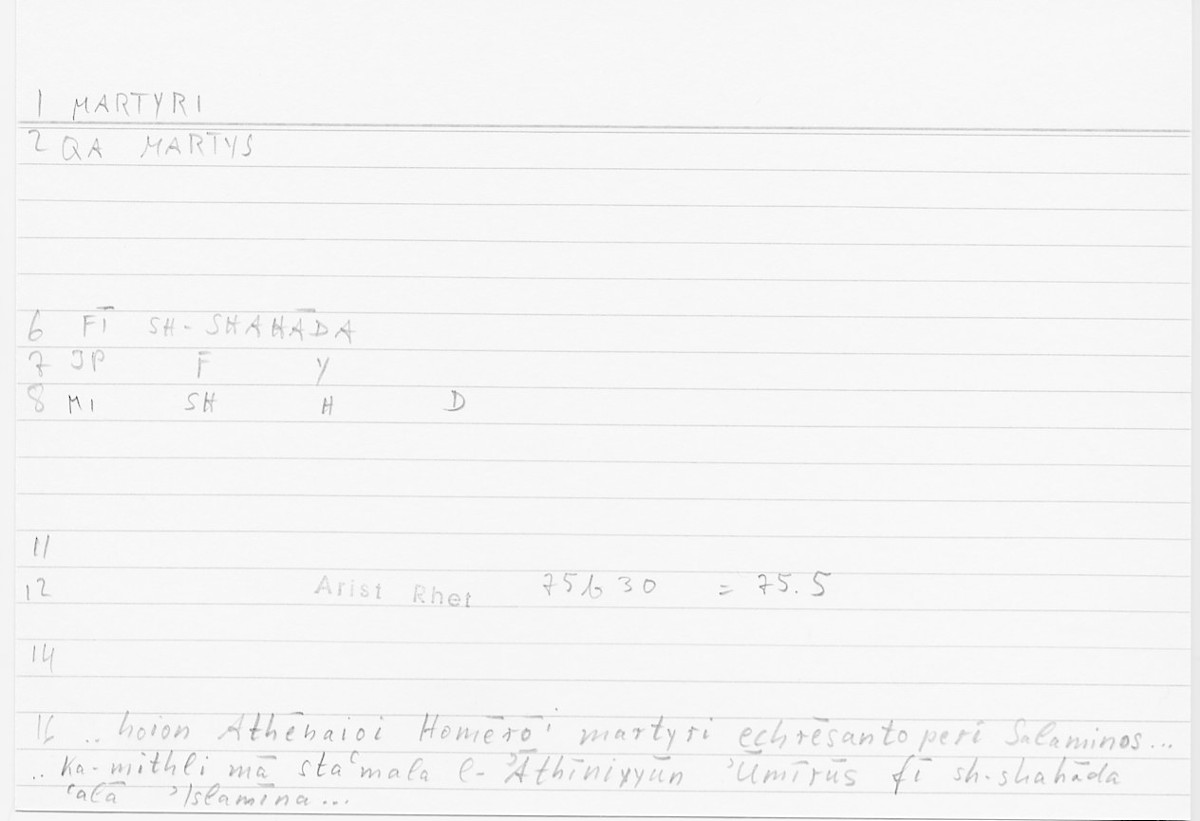 1 MARTYRI
2 QA MARTYS
6 FĪ SH-SHAHĀDA
7 JP F Y
8 M1 SH H D
11
12 Arist Rhet 75b 30 = 75.5
14
16 .. hoion Athēnaioi Homērōⁱ martyri echrēsanto peri Salaminos...
.. Ka-mithli mā staʿmala l-ʾĀthīniyyūn ʾŪmīrūs fī sh-shahāda
ʿalā ʾIslamīna...